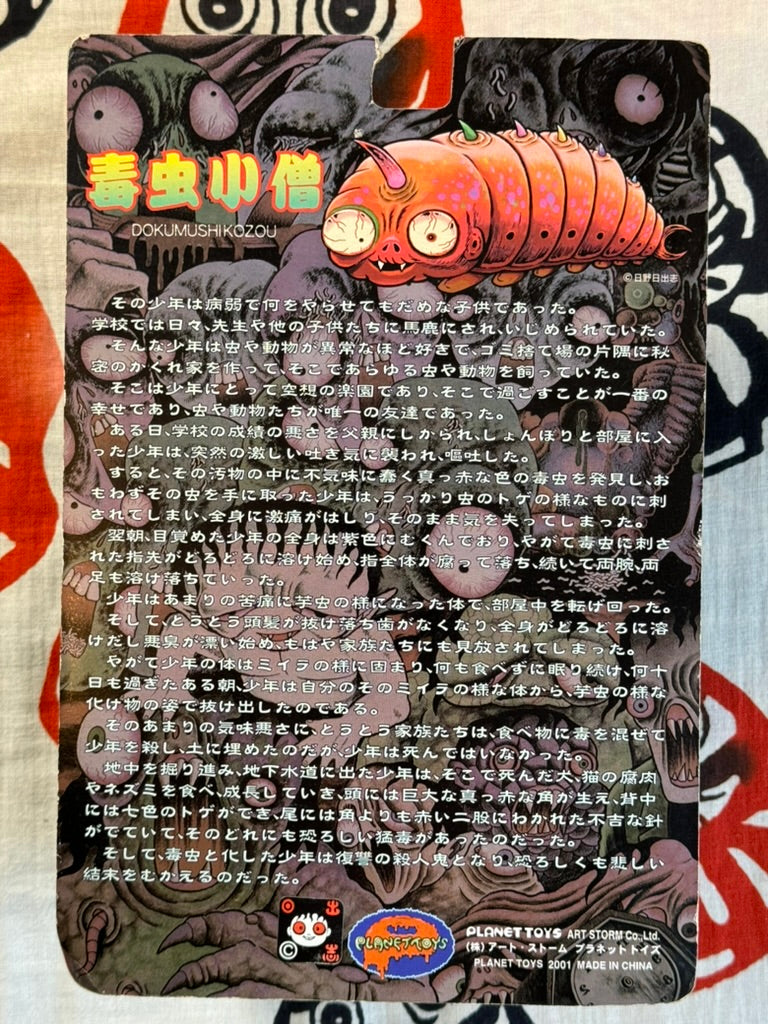 毒虫小僧
DOKUMUSHI KOZOU
©日野日出志
その少年は病弱で何をやらせてもだめな子供であった。
学校では日々、先生や他の子供たちに馬鹿にされ、いじめられていた。
そんな少年は虫や動物が異常なほど好きで、ゴミ捨て場の片隅に秘
密のかくれ家を作って、そこであらゆる虫や動物を飼っていた。
そこは少年にとって空想の楽園であり、そこで過ごすことが一番の
幸せであり、虫や動物たちが唯一の友達であった。
ある日、学校の成績の悪さを父親にしかられ、しょんぼりと部屋に入
った少年は、突然の激しい吐き気に襲われ、嘔吐した。
すると、その汚物の中に不気味に蠢く真っ赤な色の毒虫を発見し、お
もわずその虫を手に取った少年は、うっかり虫のトゲの様なものに刺
されてしまい、全身に激痛がはしり、そのまま気を失ってしまった。
翌朝、目覚めた少年の全身は紫色にむくんでおり、やがて毒虫に刺さ
れた指先がどろどろに溶け始め、指全体が腐って落ち、続いて両腕、両
足も溶け落ちていった。
少年はあまりの苦痛に芋虫の様になった体で、部屋中を転げ回った。
そして、とうとう頭髪が抜け落ち歯がなくなり、全身がどろどろに溶
けだし悪臭が漂い始め、もはや家族たちにも見放されてしまった。
やがて少年の体はミイラの様に固まり、何も食べずに眠り続け、何十
日も過ぎたある朝、少年は自分のそのミイラの様な体から、芋虫の様な
化け物の姿で抜け出したのである。
そのあまりの気味悪さに、とうとう家族たちは、食べ物に毒を混ぜて
少年を殺し、土に埋めたのだが、少年は死んではいなかった。
地中を掘り進み、地下水道に出た少年は、そこで死んだ犬、猫の腐肉
やネズミを食べ、成長していき、頭には巨大な真っ赤な角が生え、背中
には七色のトゲができ、尾には角よりも赤い二股にわかれた不吉な針
がでていて、そのどれにも恐ろしい猛毒があったのだった。
そして、毒虫と化した少年は復讐の殺人鬼となり、恐ろしくも悲しい
結末をむかえるのだった。
日
出
志
©
PLANET TOYS
PLANET TOYS ART STORM Co., Ltd.
(株)アート・ストーム プラネットトイズ
PLANET TOYS 2001 MADE IN CHINA